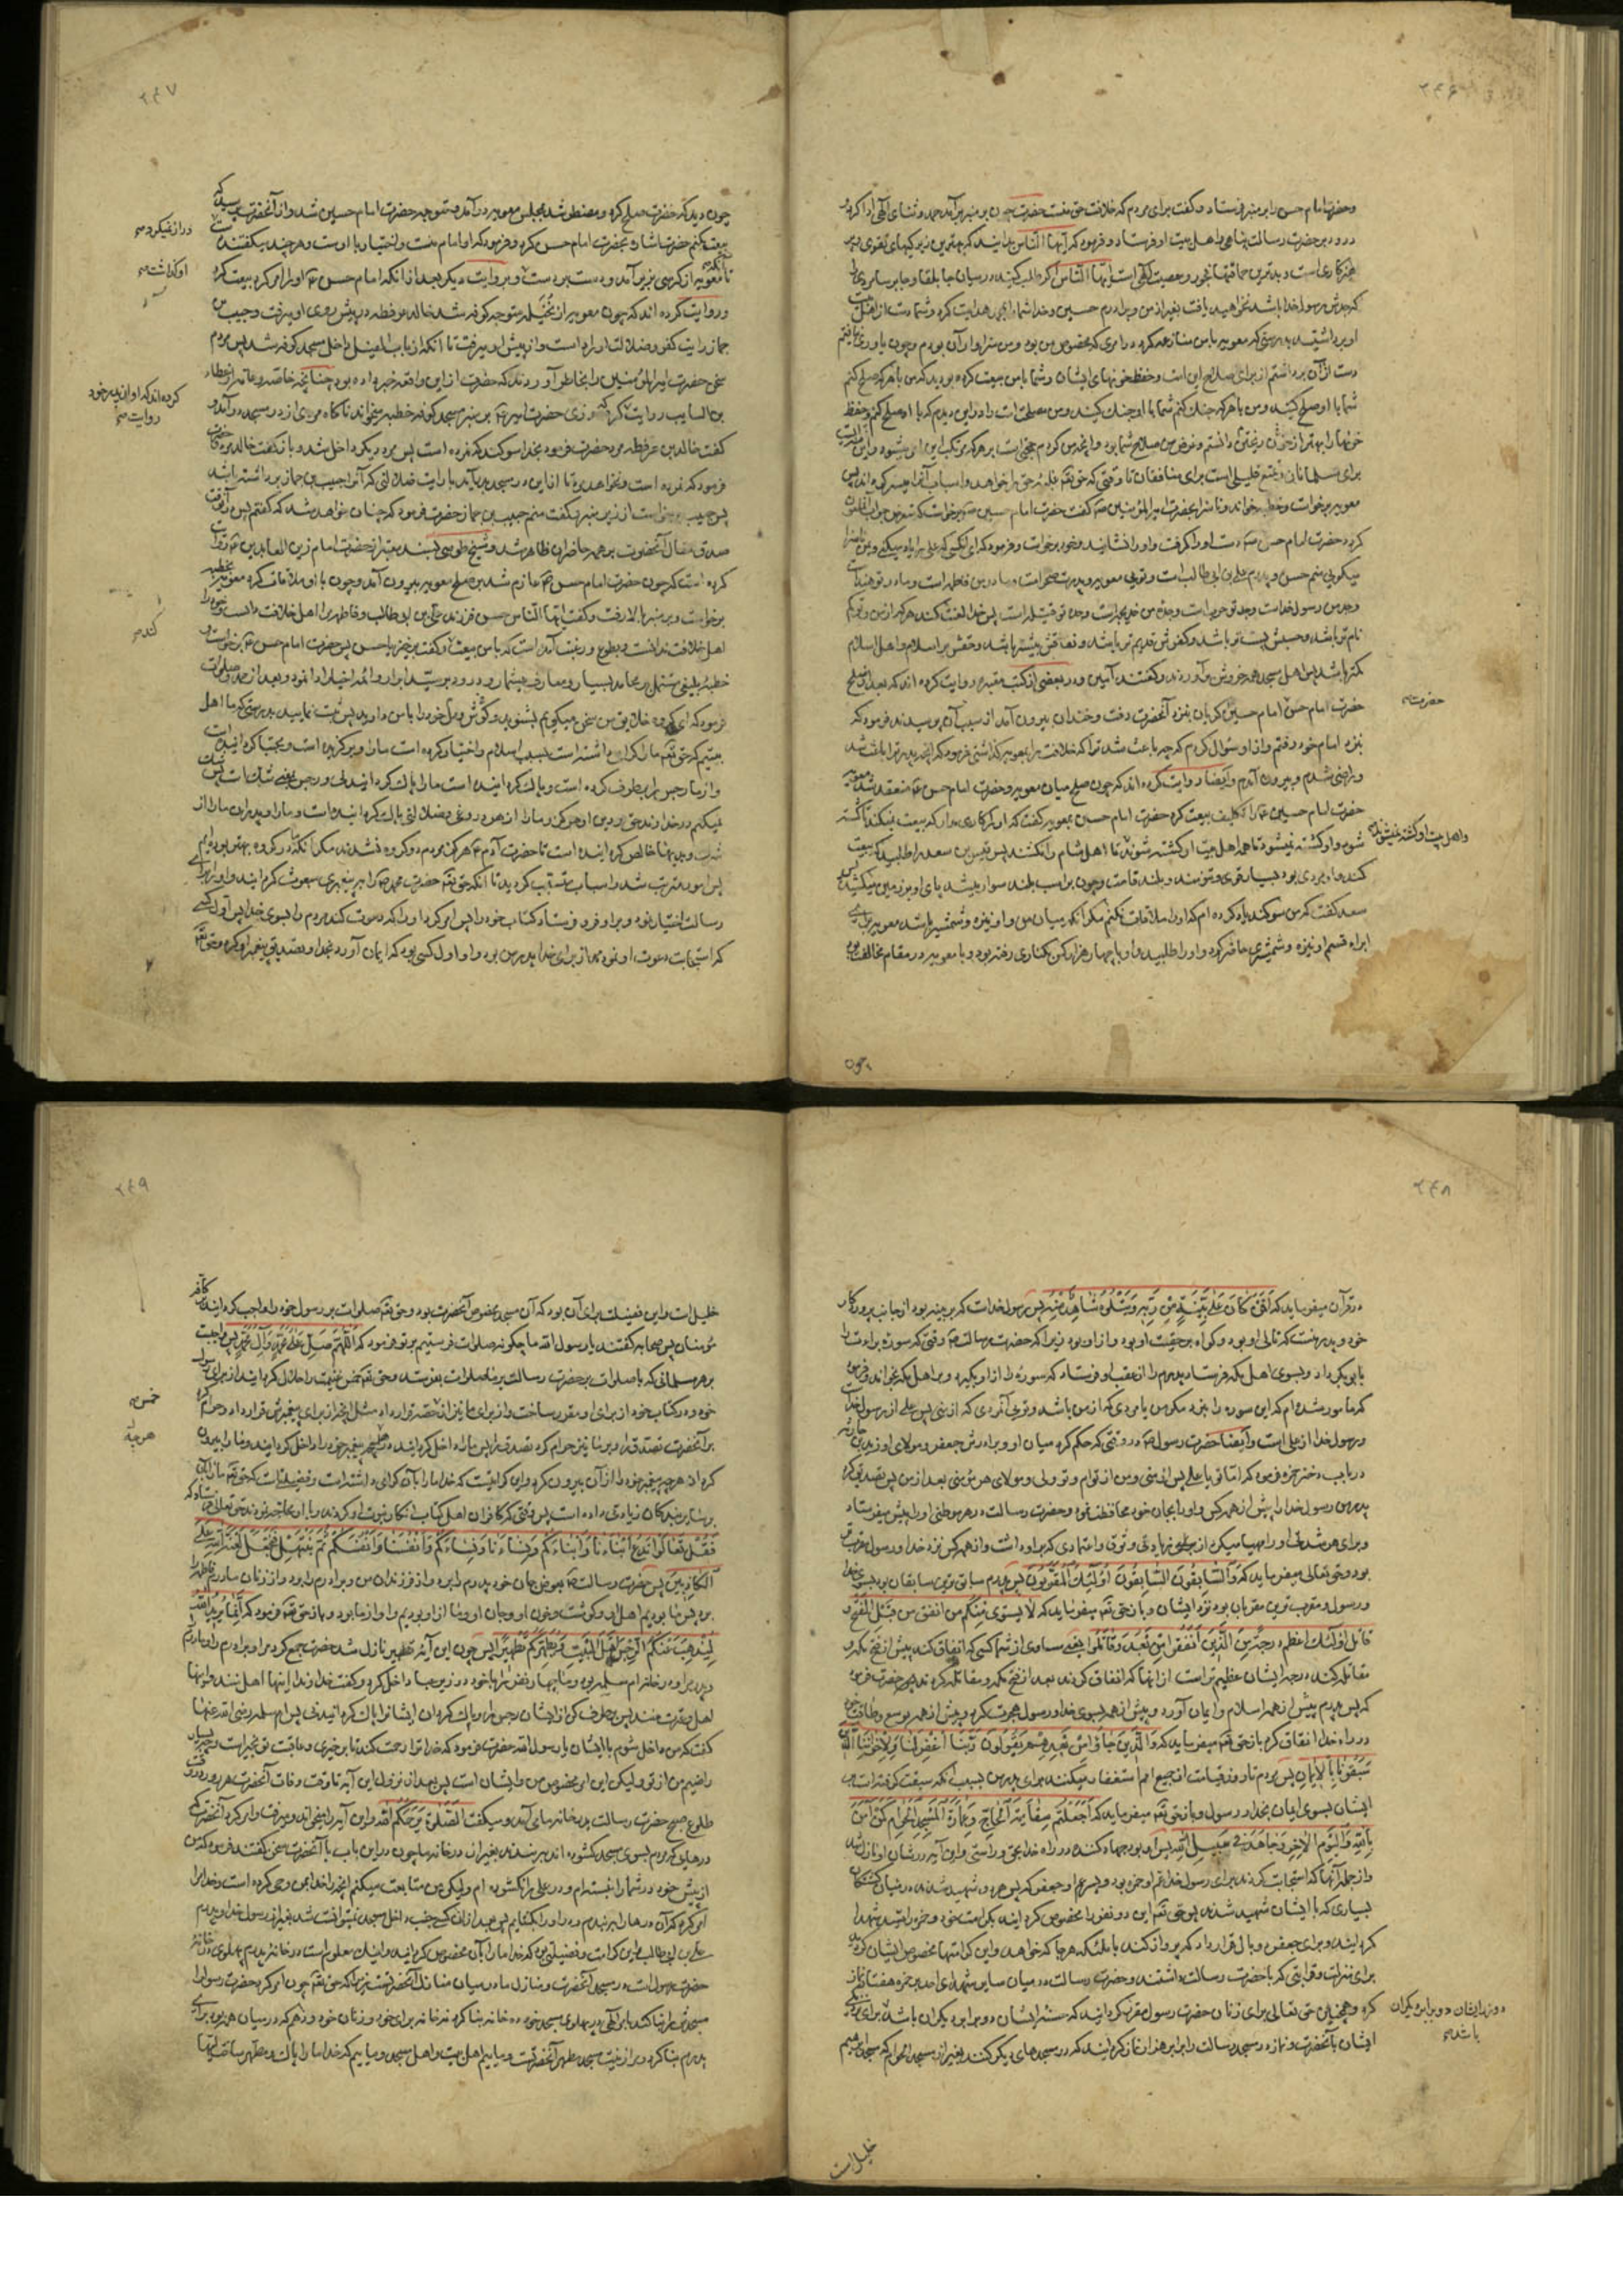 ۲۴۶
و حضرت امام حسن را بر منبر فرستاد و گفت برای مردم که خلافت حق منست حضرت چون بر منبر برآمد حمد و ثنای الهی ادا کرد و
درود بر حضرت رسالت پناهی و اهل بیت او فرستاد و فرمود که ایها الناس بدانید که بهترین زیرکیها تقوی و پر
هیزکاری است و بدترین حماقتها فجور و معصیت الهی است ایها الناس اگر طلب کنید در میان جابلقا و جابرسا مردی را
که جدش رسول خدا باشد نخواهید یافت بغیر از من و برادرم حسین و خدا شما را بمحمد هدایت کرد و شما دست از اهل بیت
او برداشتید بدرستی که معویه با من منازعه کرد در امری که مخصوص من بود و من سزاوار آن بودم و چون یاوری نیافتم
دست از آن برداشتم از برای صلاح این امت و حفظ خونهای ایشان و شما با من بیعت کرده بودید که من با هر که صلح کنم
شما با او صلح کنید و من با هر که جنک کنم شما با او جنک کنید و من مصلحت امت را در این دیدم که با او صلح کنم و حفظ
خونها را بهتر از خون ریختن دانستم و غرض من صلاح شما بود و آنچه من کردم حجتی است بر هر که مرتکب این امر میشود و این
برای مسلمانان و تمتع قلیلی است برای منافقان تا وقتی که حق تعالی غلبهٔ حق را خواهد و اسباب آنرا میسر گرداند پس
معویه برخواست و خطبه خواند و ناسزا بحضرت امیرالمؤمنین گفت حضرت امام حسین برخواست که متعرض جواب آن ملعون
گردد حضرت امام حسن دست او را گرفت و او را نشانید و خود برخواست و فرمود که ای آنکسی که علی را یاد میکنی و من ناسزا
میگویی منم حسن و پدرم علی بن ابی طالب است و تویی معویه و پدرت صخر است و مادر من فاطمه است و مادر تو هند است
و جد من رسول خداست و جد تو حرب است و جدهٔ من خدیجه است و جدهٔ تو قتیله است پس خدا لعنت کند هر که از من و تو گم
نام تر باشد و حسبش پست تر باشد و کفرش قدیم تر باشد و نفاقش بیشتر باشد و حقش بر اسلام و اهل اسلام
کمتر باشد پس اهل مسجد همه خروش برآوردند و گفتند آمین و در بعضی از کتب معتبره روایت کرده اند که بعد از صلح
حضرت امام حسن امام حسین گریان بنزد آنحضرت رفت و خندان بیرون آمد از سبب آن پرسیدند فرمود که
حضرت
بنزد امام خود رفتم و از او سؤال کردم که چه باعث شد ترا که خلافت را بمعویه گذاشتی فرمود که آنچه پدر ترا باعث شد
و راضی شدم و بیرون آمدم و ایضا روایت کرده اند که چون صلح میان معویه و حضرت امام حسن منعقد شد معویه
حضرت امام حسین را تکلیف بیعت کرد حضرت امام حسن بمعویه گفت که او را کاری مدار که بیعت نمیکند تا کشته
شود و او کشته نمیشود تا همه اهل بیت او کشته شوند و اهل بیت او کشته نمیشوند تا اهل شام را نکشند پس قیس بن سعد را طلبید که بیعت
کند و او مردی بود بسیار قوی و تنومند و بلند قامت و چون بر اسب بلند سوار میشد پای او بر زمین میکشید پس
سعد گفت که من سوگند یاد کرده ام که او را ملاقات نکنم مگر آنکه میان من و او نیزه و شمشیر باشد معویه برای
ابراء قسم او نیزه و شمشیری حاضر کرد و او را طلبید و او با چهار هزار کس بکناری رفته بود و با معویه در مقام مخالفت بود
چون
۲۴۷
چون دید که حضرت صلح کرد و مضطر شد بمجلس معویه درآمد و متوجه حضرت امام حسین شد و از آنحضرت پرسید که
بیعت کنم حضرت اشاره بحضرت امام حسن کرد و فرمود که او امام منست و اختیار با اوست و هر چند میگفتند دست
دراز نمیکرد
تا آنکه معویه از کرسی بزیر آمد و دست بر دست او گذاشت و بروایت دیگر بعد از آنکه امام حسن او را امر کرد بیعت کرد
و روایت کرده اند که چون معویه از نخیله متوجه کوفه شد خالد بن عرفطه در پیش روی او میرفت و حبیب بن
جماز رایت کفر و ضلالت او را داشت و از پیش او میرفت تا آنکه از باب الفیل داخل مسجد کوفه شد پس مردم
سخن حضرت امیرالمؤمنین را بخاطر آوردند که حضرت از این واقعه خبر داده بود چنانچه خاصه و عامه از عطاء
بن السایب روایت کرده اند که او از پدر خود روایت کرد که روزی حضرت امیر بر منبر مسجد کوفه خطبه میخواند ناگاه مردی از در مسجد درآمد و
گفت خالد بن عرفطه مرد حضرت فرمود بخدا سوگند که نمرده است پس مرد دیگر داخل شد و باز گفت خالد مرد حضرت
فرمود که نمرده است و نخواهد مرد تا از این در مسجد درآید با رایت ضلالتی که آنرا حبیب بن جماز برداشته باشد
پس حبیب برخواست از زیر منبر و گفت منم حبیب بن جماز حضرت فرمود که چنان خواهد شد که گفتم پس آنوقت
صدق مقال آنحضرت بر همه حاضران ظاهر شد و شیخ طوسی بسند معتبر از حضرت امام زین العابدین روایت
کرده است که چون حضرت امام حسن عازم شد بر صلح معویه بیرون آمد و چون با او ملاقات کرد معویه بخطبه
برخواست و بر منبر بالا رفت و گفت ایها الناس حسن فرزند علی بن ابی طالب و فاطمه مرا اهل خلافت دانست و خود را
اهل خلافت ندانست و بطوع و رغبت آمده است که با من بیعت کند و گفت برخیز یا حسن پس حضرت امام حسن برخواست و
خطبهٔ بلیغی مشتمل بر محامد بسیار و معارف بیشمار و درود بر سید ابرار و ائمه اخیار ادا نمود و بعد از حمد و صلوات
فرمود که ای گروه خلایق من سخن میگویم بشنوید و گوش و دل خود را با من دارید پس تثبت نمایید بدرستی که ما اهل
بیتیم که حق تعالی ما را گرامی داشته است بسبب اسلام و اختیار کرده است ما را و برگزیده است و مجتبا گردانیده است
و از ما رجس را برطرف کرده است و پاک گردانیده است ما را پاک گردانیدنی و رجس بمعنی شک است پس شک
نمیکنیم در خداوند حق و دین او هرگز و ما را از هر دروغی و ضلالتی پاک گردانیده است و ما را و پدران ما را از
شرک و بدیها خالص گردانیده است تا حضرت آدم هرگز مردم دو گروه نشدند مگر آنکه ما در گروه بهتر بودیم
پس امور مترتب شد و اسباب متسبب گردید تا آنکه حق تعالی حضرت محمد را به پیغمبری مبعوث گردانید و او را برای
رسالت اختیار نمود و بر او فرو فرستاد کتاب خود را پس امر کرد او را که دعوت کند مردم را بسوی خدا پس اول کسی
که استجابت دعوت او نمود از برای خدا پدر من بود و او اول کسی بود که ایمان آورد بخدا و تصدیق پیغمبر او کرد و حق تعالی
۲۴۸
در قرآن میفرماید که افمن کان علی بینة من ربه و یتلوه شاهد منه پس رسول خداست که بر بینه بود از جانب پروردگار
خود و پدر منست که تالی او بود و گواه بر حقیت او بود و از او بود زیرا که حضرت رسالت وقتی که سوره براءت را
بابوبکر داد و بسوی اهل مکه فرستاد پدرم را از عقب او فرستاد که سوره را از او بگیرد و بر اهل مکه بخواند و فرمود
که مأمور شده ام که این سوره را نبرد مگر من یا مردی که از من باشد و تویی آنمردی که از منی پس علی از رسول خداست
و رسول خدا از علی است و ایضا حضرت رسول در وقتی که حکم کرد میان او و برادرش جعفر و مولای او زید بن حارثه
در باب دختر حمزه فرمود که اما تو یا علی پس از منی و من از توام و تو ولی و مولای هر مؤمنی بعد از من پس تصدیق کرد
پدر من رسول خدا را پیش از همه کس و او را بجان خود محافظت نمود و حضرت رسالت در هر موطنی او را پیش میفرستاد
و برای هر شدتی او را مهیا میکرد از برای زیادتی وثوق و اعتمادی که بر او داشت و از همه کس نزد خدا و رسول مقرب تر
بود و حق تعالی میفرماید که والسابقون السابقون اولئک المقربون پس پدرم سابق ترین سابقان بود بسوی خدا
و رسول و مقرب ترین مقربان بود نزد ایشان و باز حق تعالی میفرماید که لا یستوی منکم من انفق من قبل الفتح و
قاتل اولئک اعظم درجة من الذین انفقوا من بعد و قاتلوا یعنی مساوی از شما کسی که انفاق کند پیش از فتح مکه و
مقاتله کند درجه ایشان عظیم تر است از آنها که انفاق کردند بعد از فتح مکه و مقاتله کردند پس حضرت فرمود
که پس پدرم پیش از همه اسلام و ایمان آورد و پیش از همه بسوی خدا و رسول هجرت کرد و پیش از همه بوسع و طاقت خود
در راه خدا انفاق کرد باز حق تعالی میفرماید که والذین جاؤا من بعدهم یقولون ربنا اغفر لنا و لاخواننا الذین
سبقونا بالایمان پس مردم تا روز قیامت از جمیع امم استغفار میکنند برای پدر من بسبب آنکه سبقت گرفته است بر
ایشان بسوی ایمان بخدا و رسول و باز حق تعالی میفرماید که اجعلتم سقایة الحاج و عمارة المسجد الحرام کمن آمن
بالله و الیوم الآخر و جاهد فی سبیل الله پس او بود جهاد کننده در راه خدا بحق و راستی و این آیه در شان او نازل شد
و از جمله آنها که استجابت کردند برای رسول خدا عم او حمزه بود و پسر عم او جعفر که پس هر دو شهید شدند در میان کشتگان
بسیاری که با ایشان شهید شدند پس حق تعالی این دو نفر را مخصوص گردانید بکرامت خود و حمزه را سید شهدا
گردانید و برای جعفر دو بال قرار داد که پرواز کند با ملئکه هر جا که خواهد و این کرامتها مخصوص ایشان گردید
برای منزلت و قرابتی که با حضرت رسالت داشتند و حضرت رسالت در میان سایر شهدای احد بر حمزه هفتاد نماز
کرد و همچنین حق تعالی برای زنان حضرت رسول مقرر گردانید که حسنه ایشان دو برابر دیگران باشد برای نزدیکی
و وزر ایشان دو برابر دیگران
باشد
ایشان بآنحضرت و نماز در مسجد رسالت را برابر هزار نماز گردانید که در مسجدهای دیگر کنند بغیر از مسجد الحرام که مسجد ابراهیم
خلیل است
۲۴۹
خلیل است و این فضیلت برای آن بود که آن مسجد مخصوص آنحضرت بود و حق تعالی صلوات بر رسول خود را واجب گردانید بر کافه
مؤمنان پس صحابه گفتند یا رسول الله ما چگونه صلوات فرستیم بر تو فرمود که اللهم صل علی محمد و آل محمد پس واجبست
بر هر مسلمانی که با صلوات بر حضرت رسالت بر ما صلوات بفرستد و حق تعالی خمس غنیمت را حلال گردانید از برای رسول
خمس
خود و در کتاب خود از برای او مقرر ساخت و از برای ما نیز از آن حصه قرار داد مثل آنچه از برای پیغمبرش قرار داد و حرام کرد
بر آنحضرت تصدق را و بر ما نیز حرام کرد تصدق را پس ما را داخل گردانید در هر چه پیغمبر خود را داخل گردانید و ما را بیرون
هر چه
کرد از هر چه پیغمبر خود را از آن بیرون کرد و این کرامتیست که خدا ما را بآن گرامی داشته است و فضیلتیست که حق تعالی ما را بآن
بر سایر بندگان زیادتی داده است پس وقتی که کافران اهل کتاب انکار نبوت او کردند و با او محاجه نمودند حق تعالی فرستاد که
فقل تعالوا ندع ابناءنا و ابناءکم و نساءنا و نساءکم و انفسنا و انفسکم ثم نبتهل فنجعل لعنة الله علی
الکاذبین پس حضرت رسالت بعوض جان خود پدرم را برد و از فرزندان من و برادرم را برد و از زنان مادرم فاطمه را
برد پس ما بودیم اهل او و گوشت و خون او و جان او و ما از او بودیم و او از ما بود و باز حق تعالی فرمود که انما یرید الله
لیذهب عنکم الرجس اهل البیت و یطهرکم تطهیرا پس چون این آیهٔ تطهیر نازل شد حضرت جمع کرد مرا و برادرم را و مادرم
و پدرم را در خانه ام سلمه برد و ما چهار نفر را با خود در زیر عبا داخل کرد و گفت خداوندا اینها اهل منند و اینها
اهل و عترت منند پس برطرف کن از ایشان رجس را و پاک گردان ایشانرا پاک گردانیدنی پس ام سلمه رضی الله عنها
گفت که من داخل شوم با ایشان یا رسول الله حضرت فرمود که خدا ترا رحمت کند تو بر خیری و عاقبت تو بخیر است و چه بسیار
راضیم من از تو و لیکن این امر مخصوص من و ایشان است پس بعد از نزول این آیه تا وقت وفات آنحضرت هر روز در وقت
طلوع صبح حضرت رسالت بدر خانه ما می آمد و میگفت الصلوة یرحمکم الله و این آیه را میخواند و میرفت و امر کرد آنحضرت که
درهای که مردم بسوی مسجد گشوده اند ببندند بغیر از در خانه ما چون در این باب با آنحضرت سخن گفتند فرمود که من
از پیش خود در شما را نبسته ام و در علی را نگشوده ام و لیکن من متابعت میکنم آنچه را خدا بمن وحی کرده است و خدا مرا
امر کرد که آن درها را ببندم و در او را بگشایم پس بعد از آن کسی جنب داخل مسجد نمیتوانست شد بغیر از رسول خدا و پدرم
علی بن ابی طالب و این کرامت و فضیلتی بود که خدا ما را بآن مخصوص گردانید و اینک معلوم است در خانهٔ پدرم پهلوی در خانه
حضرت رسول است در مسجد آنحضرت و منازل ما در میان منازل آنحضرتست زیرا که حق تعالی چون امر کرد حضرت رسول را
مسجدش را بنا کند با امر الهی در پهلوی مسجد خود ده خانه بنا کرد نه خانه برای خود و زنان خود و دهم که در میان همه بود برای
پدرم بنا کرد و مراد از بیت مسجد مطهر آنحضرتست و ماییم اهل بیت و اهل مسجد و ماییم که خدا ما را پاک و مطهر ساخته